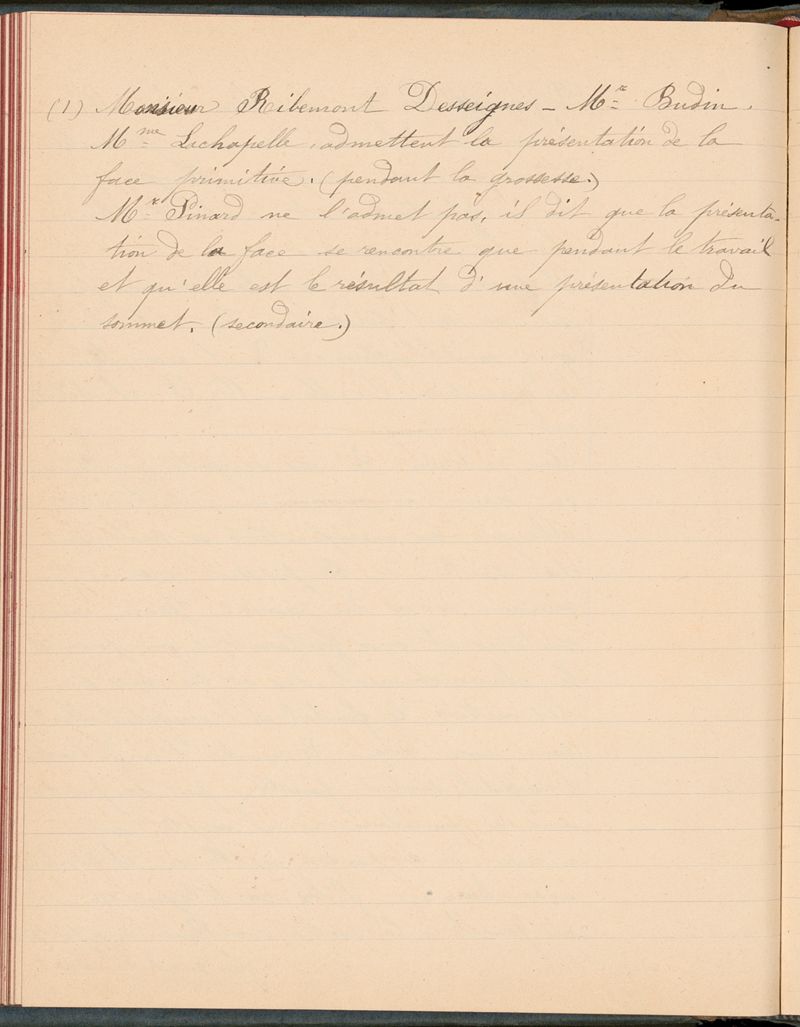 (1) Monsieur Ribemont Desseignes - Mr Budin.
Mme Lachapelle, admettent la présentation de la
face primitive. (pendant la grossesse.)
Mr Pinard ne l'admet pas, il dit que la présenta-
tion de la face se rencontre que pendant le travail
et qu'elle est le résultat d'une présentation du
sommet. (secondaire.)